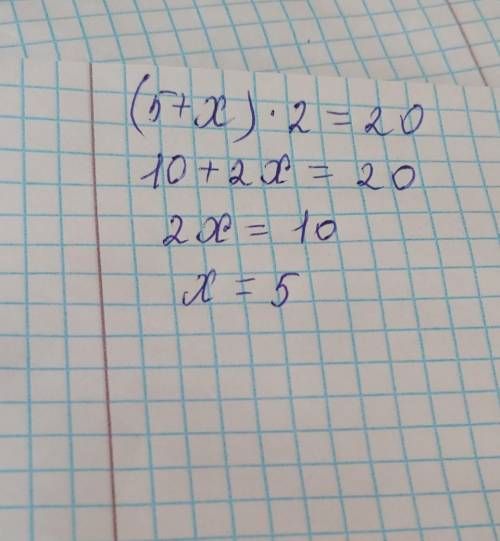 (5+x)·2=20
10+2x=20
2x=10
x=5